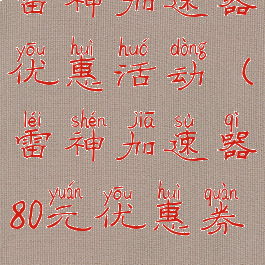 雷神加速器
yōu huì huó dòng
优惠活动（
léi shén jiā sù qì
雷神加速器
yuán yōu huì quàn
80元优惠券